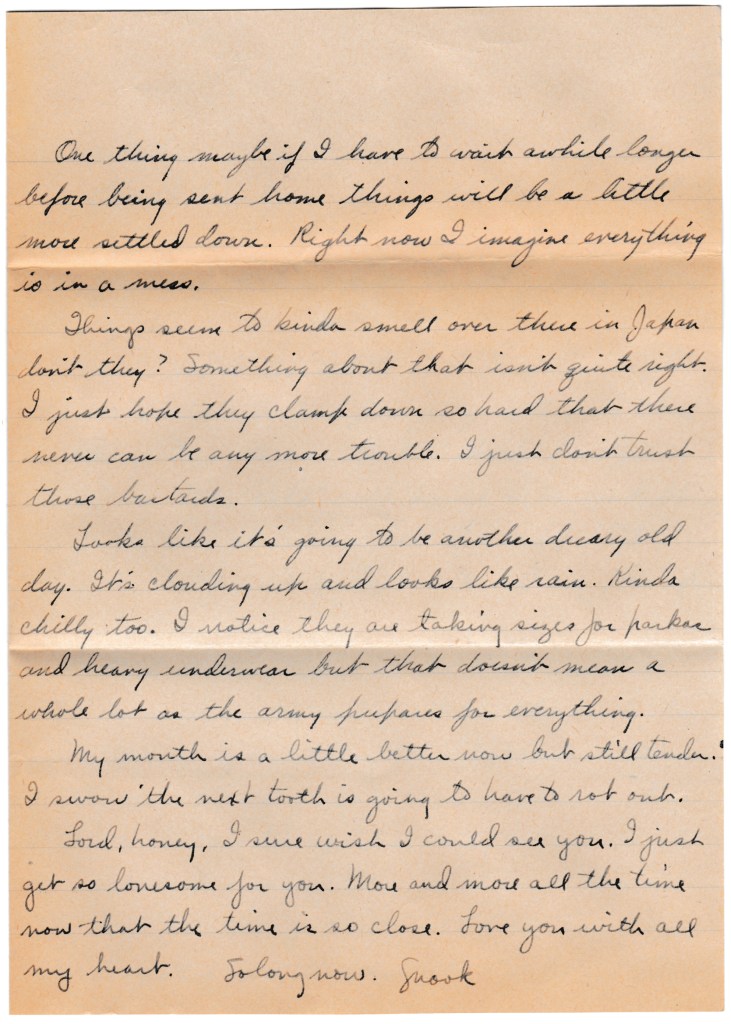 One thing maybe if I have to wait awhile longer
before being sent home things will be a little
more settled down. Right now I imagine everything
is in a mess.
Things seem to kinda smell over there in Japan
don't they? Something about that isn't quite right.
I just hope they clamp down so hard that there
never can be any more trouble. I just don't trust
those bastards.
Looks like it's going to be another dreary old
day. It's clouding up and looks like rain. Kinda
chilly too. I notice they are taking sizes for parkas
and heavy underwear but that doesn't mean a
whole lot as the army prepares for everything.
My mouth is a little better now but still tender.
I swow the next tooth is going to have to rot out.
Lord, honey, I sure wish I could see you. I just
get so lonesome for you. More and more all the time
now that the time is so close. Love you with all
my heart. So long now. Snook